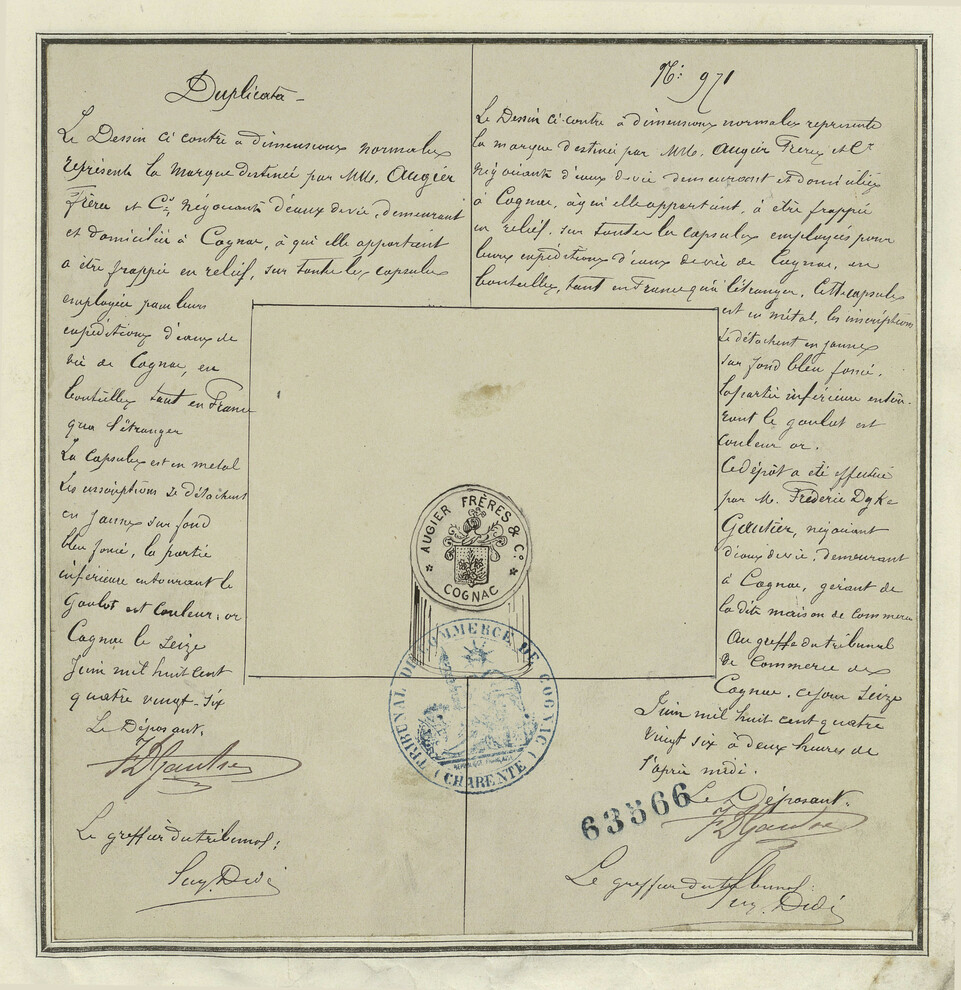 Duplicata
Le Dessin ci contre à dimensions normales
représente la marque destinée par MM. Augier
Frères et Cie, Négociants d'eaux de vie, demeurant
et domiciliés à Cognac, à qui elle appartient
a être frappée en relief, sur toutes les capsules
employées pour leurs
expéditions d'eaux de
vie de Cognac, en
bouteilles tant en France
qu'a l'étranger
La Capsule est en métal
Les inscriptions se détachent
en jaune sur fond
bleu foncé, la partie
inférieure entourant le
Goulot est couleur or
Cognac le seize
Juin mil huit cent
quatre vingt six
Le Déposant.
FDGautier
Le greffier du tribunal:
No: 971
Le Dessin ci-contre à dimensions normales représente
la marque destinée par MM. Augier Frères et Cie
Négociants d'eaux de vie demeurant et domiciliés
à Cognac, à qui elle appartient, à être frappée
en relief, sur toutes les capsules employées pour
leurs expéditions d'eaux de vie de Cognac, en
bouteilles, tant en France qu'à l'étranger. Cette capsule
est en métal, les inscriptions
se détachent en jaune
sur fond bleu foncé.
La partie inférieure entou-
rant le goulot est
couleur or.
Ce dépôt a été effectué
par M. Fréderic Dyke
Gautier, négociant
d'eaux de vie, demeurant
à Cognac, gérant de
la dite maison de commerce
Au greffe du tribunal
de Commerce de
Cognac, ce jour seize
Juin mil huit cent quatre
vingt six à deux heures de
l'après midi.
Le Déposant:
FDGautier
Le greffier du tribunal:
AUGIER FRÈRES & Co.
COGNAC
TRIBUNAL DE COMMERCE DE COGNAC
(CHARENTE)
63566